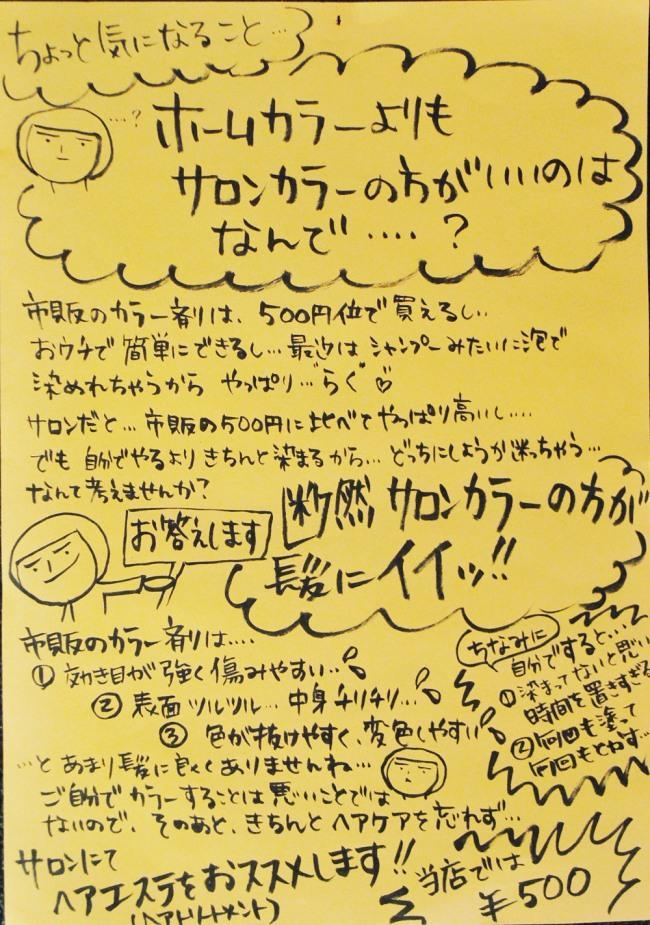 ちょっと気になること…
…?
ホームカラーよりも
サロンカラーの方がいいのは
なんで….?
市販のカラー剤は、500円位で買えるし..
おウチで簡単にできるし…最近はシャンプーみたいに泡で
染めれちゃうから やっぱり…"らく"♡
サロンだと…市販の500円に比べてやっぱり高いし….
でも 自分でやるよりきちんと染まるから…どっちにしようか迷っちゃう…
なんて考えませんか?
お答えします
断然 サロンカラーの方が
髪にイイッ!!
市販のカラー剤は….
① 効き目が強く傷みやすい…
② 表面ツルツル…中身チリチリ…
③ 色が抜けやすく、変色しやすい
…と あまり髪に良くありませんね…
ご自分でカラーすることは悪いことでは
ないので、そのあと、きちんとヘアケアを忘れず…
サロンにて
ヘアエステをおススメします!!
(ヘアトリートメント)
ちなみに
自分ですると…
①染まってないと思い
時間を置きすぎる
②何回も塗って
何回もとかす…
当店では
¥500